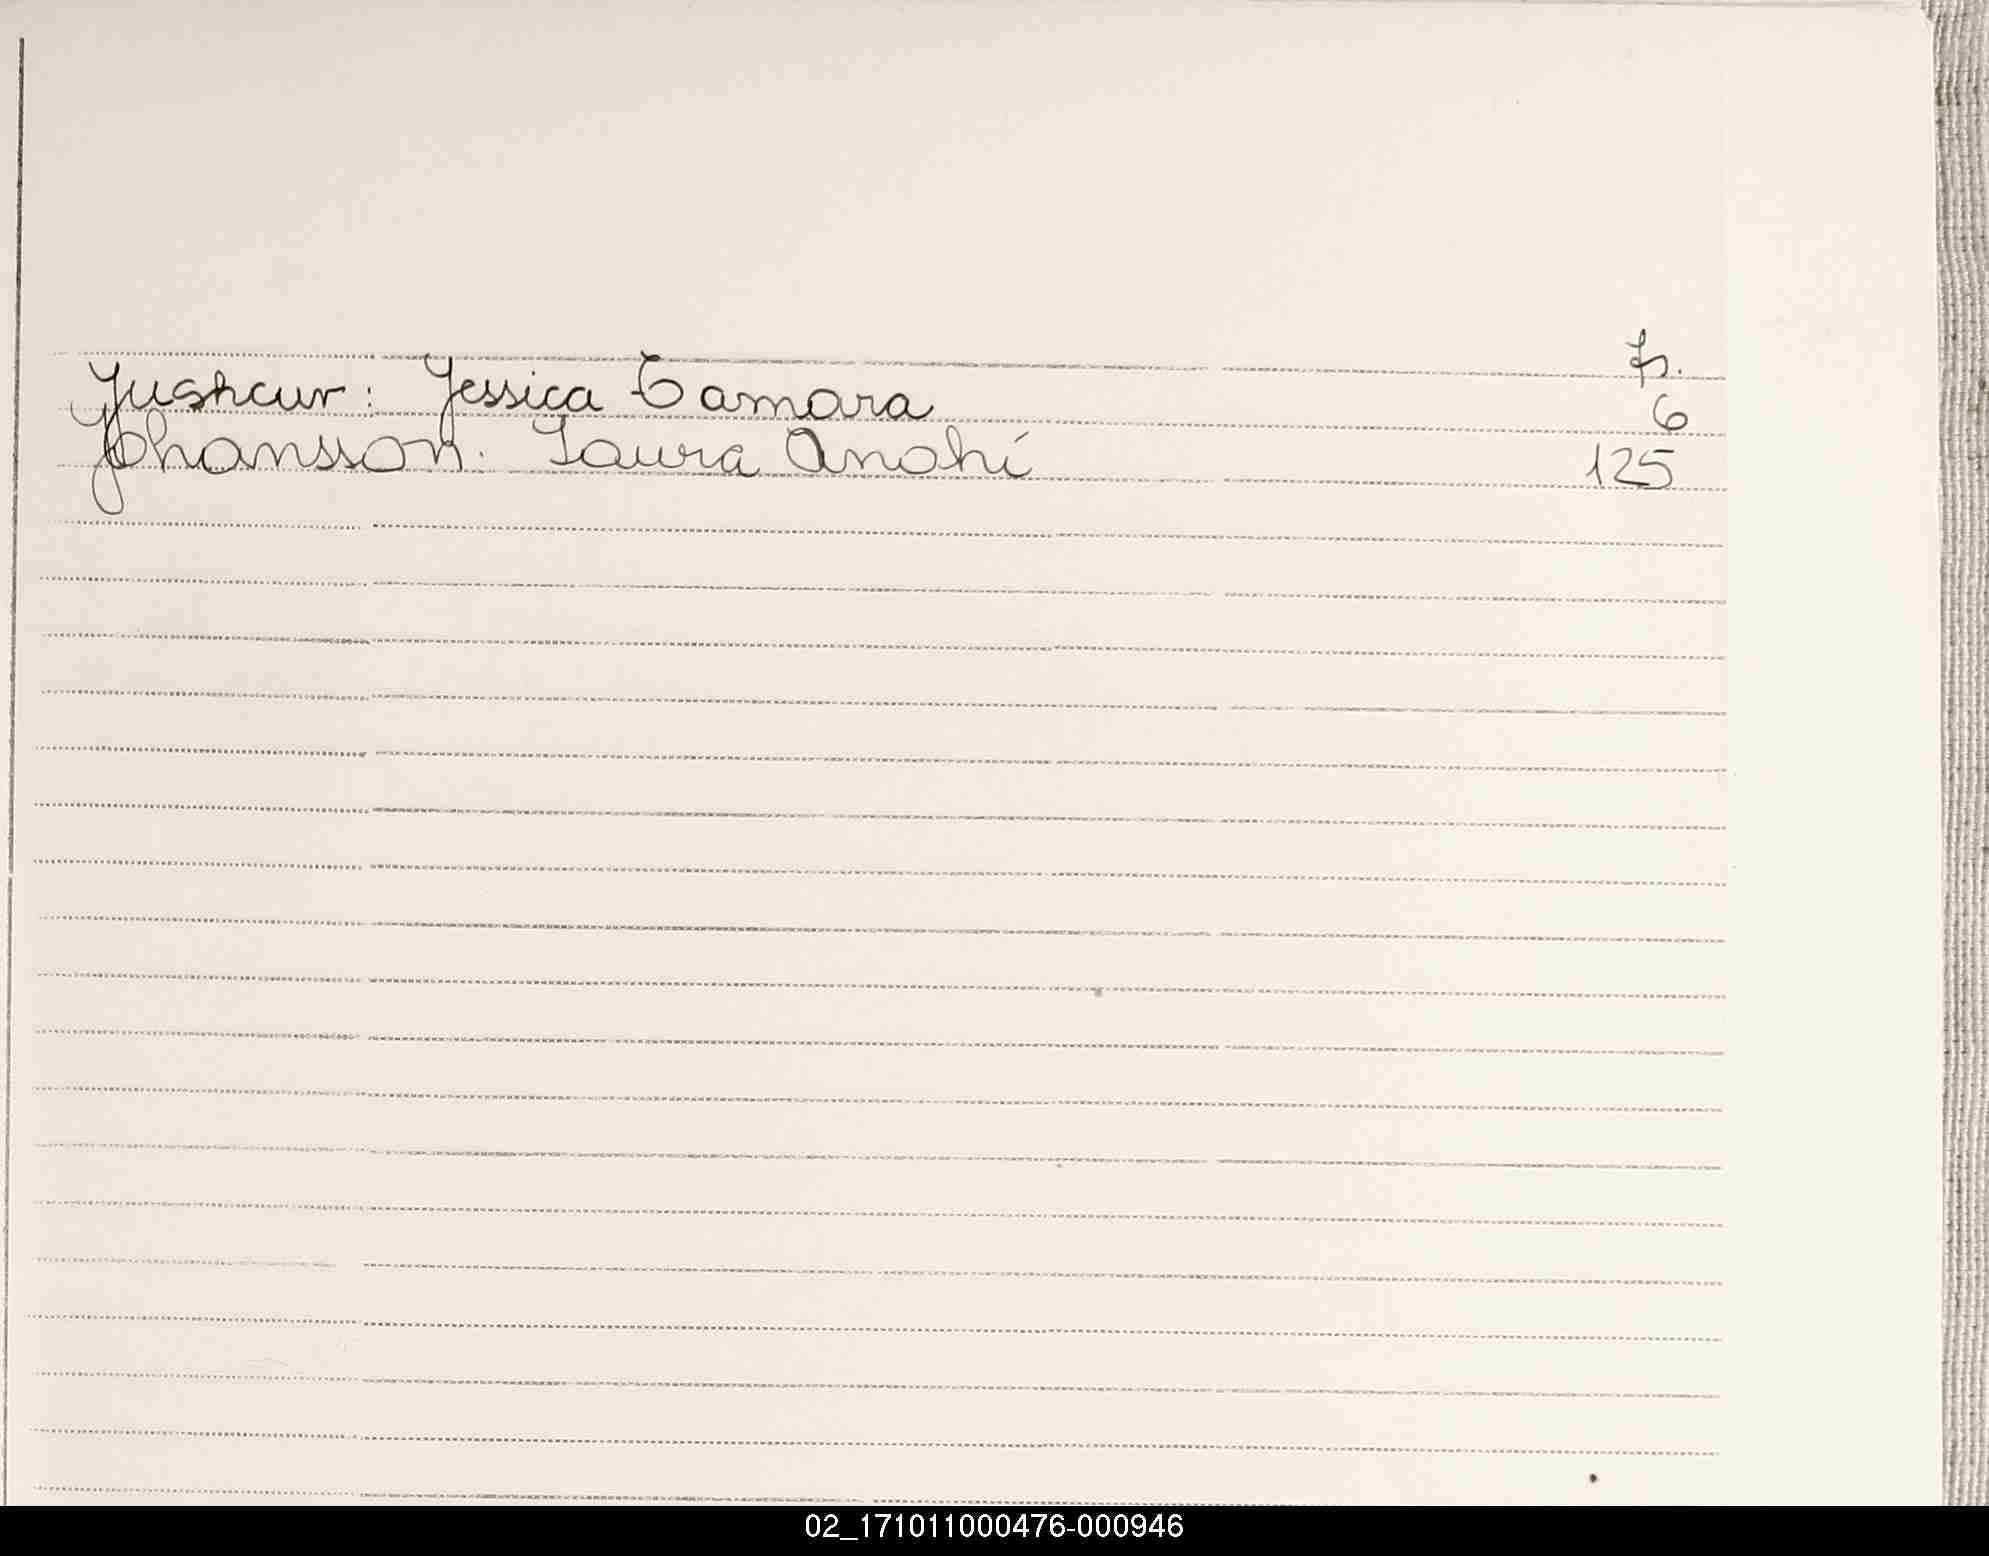 fs.
Jushcur: Jessica Tamara 6
Johansson: Laura Anahí 125
02_171011000476-000946